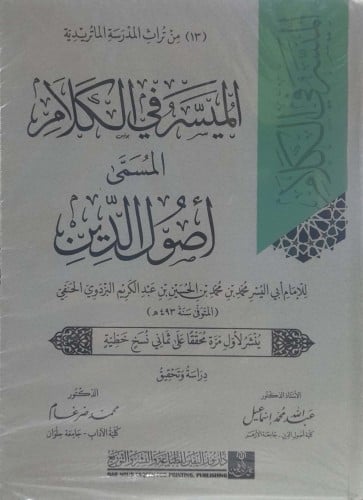 (١٣) مِنْ تُرَاثِ المَدْرَسَةِ المَاتُرِيدِيَّةِ
الميسر في الكلام
المُيَسَّر في الكَلَام
المُسَمَّى
أُصُولُ الدِّينِ
لِلإِمَامِ أَبِي اليُسْرِ مُحَمَّدِ بْنِ مُحَمَّدِ بْنِ الحُسَيْنِ بْنِ عَبْدِ الكَرِيمِ البَزْدَوِيِّ الحَنَفِيِّ
(المُتَوَفَّى سَنَةَ ٤٩٣ هـ)
يُنْشَرُ لأَوَّلِ مَرَّةٍ مُحَقَّقًا عَلَى ثَمَانِي نُسَخٍ خَطِّيَّةٍ
دِرَاسَةُ وَتَحْقِيقُ
الأستاذ الدكتور
عبد الله محمد إسماعيل
كلية أصول الدين - جامعة الأزهر
الدكتور
محمد ضرغام
كلية الآداب - جامعة حلوان
PRINTING, PUBLISHING